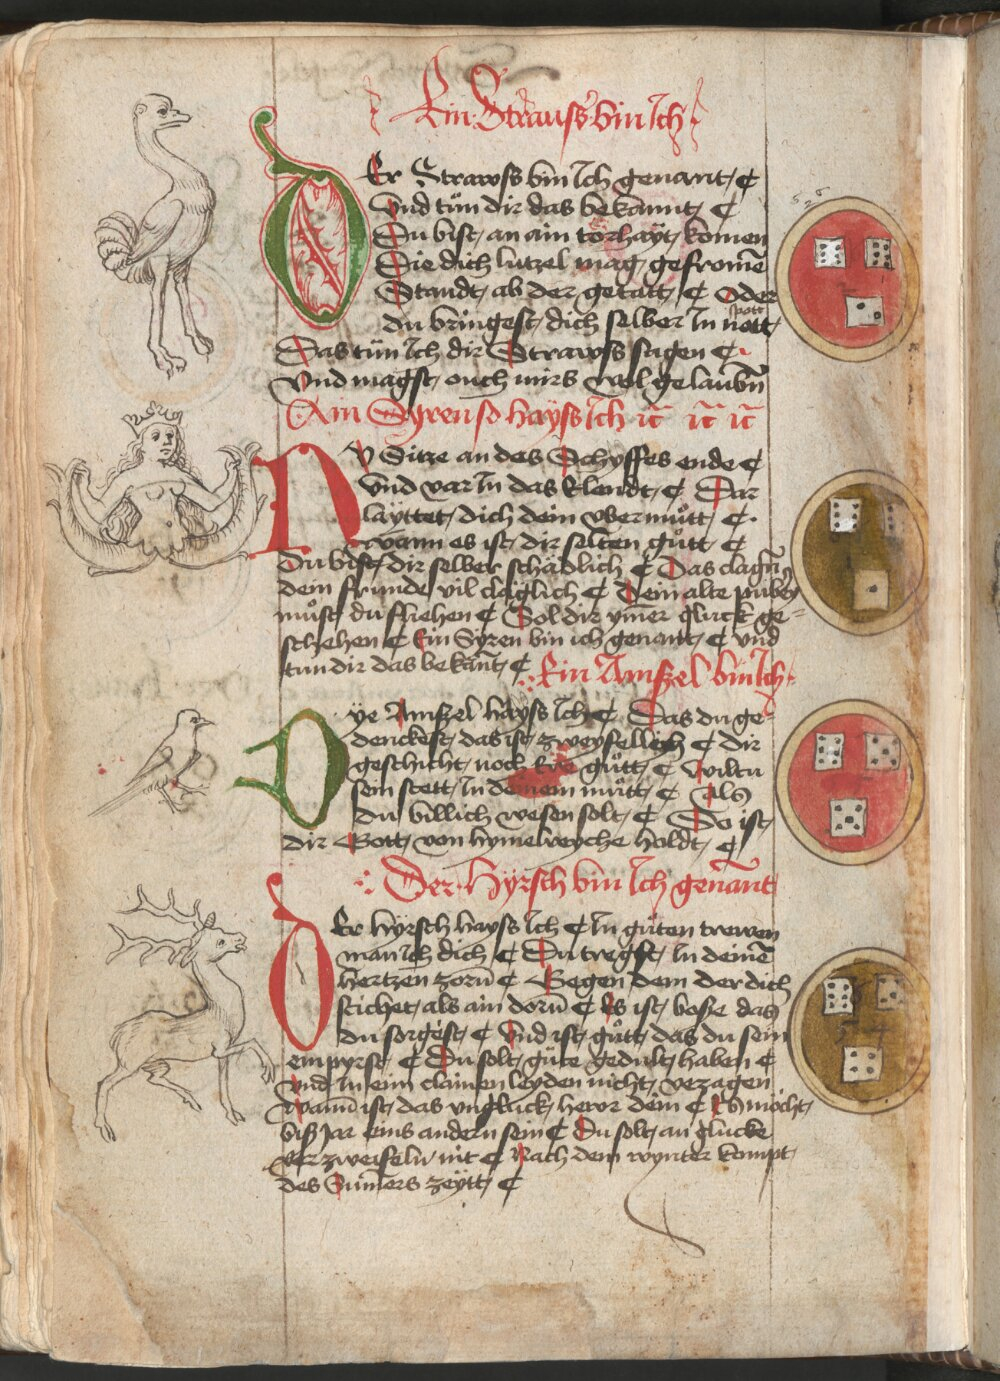 Ein Strauss bin Ich
Er Strawss bin Ich genant ¢
Und tůn dir das bekannt ¢
Du bist an ain torhayt komen
Die dich lutzel mag gefromē
Standt ab der getatt ¢ Oder
spott
du bringest dich selber In nott
Das tůn Ich dir Strawss sagen ¢
Und magst ouch mirs wol gelaubn̄
Ain Syren so hayss Ich
DV Sitze an des Schyffes ende ¢
Vnd var In das Elendt ¢ Dar
layttet dich dein vbermůtt ¢
wann es ist dir selten gůtt ¢
Du bist dir selber schadlich ¢ Das clagn̄
dein frunde vil claglich ¢ Dein alte
můst du fliehen ¢ Sol dir ymer gluck ge=
schehen ¢ Ein Syren bin ich genant ¢ vnd
tun dir das bekāt ¢
Ein Amsel bin Ich
Dye Amsel hayss Ich ¢ Das du ge=
denckest das ist zweyfellich ¢ Dir
geschicht noch gůtt ¢ Wiltu
sein stett In deinem můtt ¢ Als
du billich wesen solt ¢ So ist
dir Gott von hymelreyche holdt ¢
Der Hyrsch bin Ich genānt
DEr hyrsch hayss Ich ¢ In gůten trewen
man Ich dich ¢ Du tregst In deinē
hertzen zorn̄ ¢ Gegen dem der dich
stichet als ain dorn̄ ¢ Es ist bose das
du sorgest ¢ Vnd ist gůtt das du sein
empyrst ¢ Du solt gůte gedult haben ¢
Vnd In eim clainen leyden nicht verzagen
Wann ist das vngluck hewr dein ¢ Es mocht
biss Jar eins andern sein ¢ Du solt an glucke
verzweifeln nit ¢ Nach dem wynter kompt
des Sumers zeytt ¢